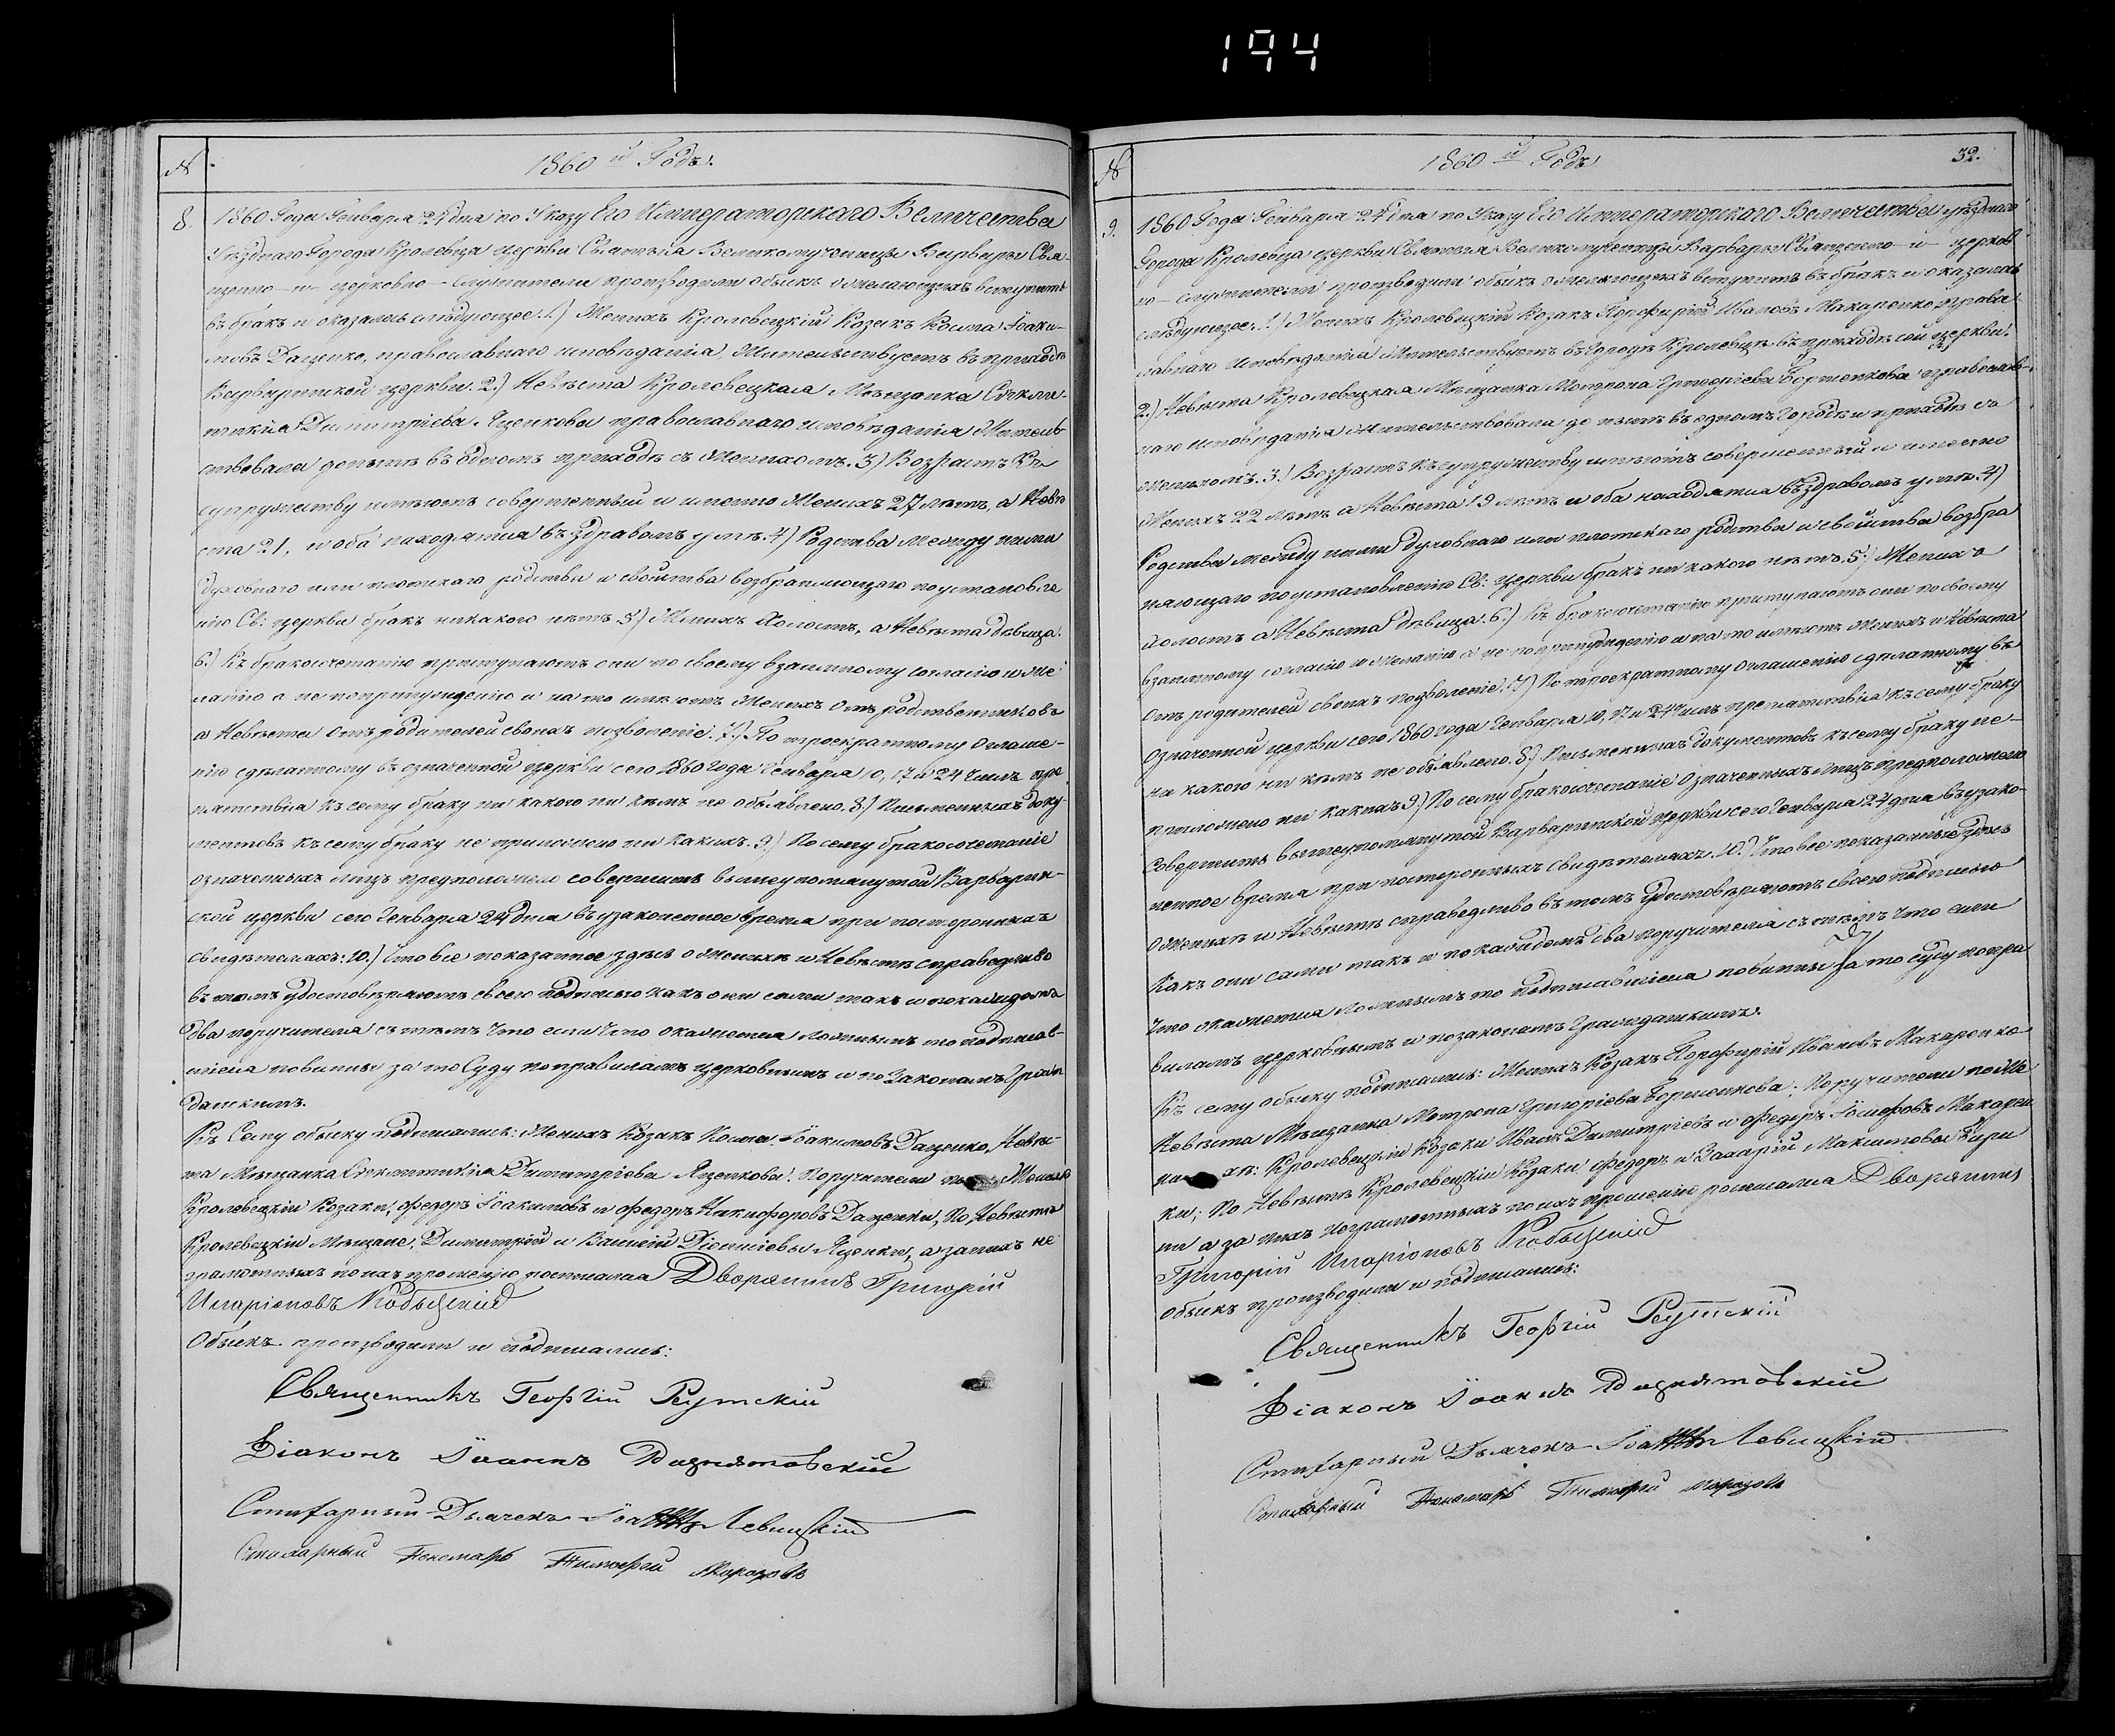 194
№
1860 й Годъ.
8.
1860 Года Генваря 24 дня по Указу Его Императорскаго Величества
Уѣзднаго Города Кролевца церкви Святыя Великомученицы Варвары Свя-
щенно- и- церковно- служители производили обыскъ о желающихъ вступить
въ бракъ и оказалось слѣдующее. 1.) Женихъ Кролевецкій Козакъ Косма Іоаки-
мовъ Даценко, православнаго исповѣданія, Жительствуетъ въ приходѣ
Варваринской церкви. 2.) Невѣста Кролевецкая Мѣщанка
Димитріева Яценкова православнаго исповѣданія Жительст-
вовала донынѣ въ одномъ приходѣ съ Женихомъ. 3) Возрастъ Къ
супружеству имѣютъ совершенный и именно Женихъ 27 лѣтъ, а Невѣ
ста 21. и оба находятся въ здравомъ умѣ. 4) Родства между ними
духовнаго или плотскаго родства и свойства возбраняющаго по установле
нію Св: церкви бракъ никакого нѣтъ. 5.) Женихъ Холостъ, а Невѣста дѣвица.
6.) Къ бракосочетанію приступаютъ они по своему взаимному согласію и же
ланію а не попринужденію и на то имѣютъ Женихъ Отъ родственниковъ
а Невѣста Отъ родителей своихъ позволеніе. 7.) По троекратному Оглаше-
нію сдѣланному въ означенной церкви сего 1860 года Генваря 10, 17 и 24 Чиселъ пре
пятствія къ сему браку ни какого ни кѣмъ не объявлено. 8.) Письменныхъ доку-
ментовъ къ сему браку не приложено ни какихъ. 9.) По сему бракосочетаніе
означенныхъ лицъ предположено совершить вышеупомянутой Варварин-
ской церкви сего Генваря 24 дня въ узаконенное время при постороннихъ
свидѣтеляхъ: 10.) Что все показанное здѣсь о женихѣ и Невѣстѣ справедливо
въ томъ удостовѣряютъ своею подписью какъ они сами такъ и покаждомъ
два поручителя съ тѣмъ что если Что окажется ложнымъ то подписав-
шіеся повинны за то Суду поправиламъ церковнымъ и по Законамъ Граж
данскимъ.
Къ Сему обыску подписались: Женихъ Козакъ Косма Іоакимовъ Даценко, Невѣс-
та Мѣщанка Димитріева Яценкова. Поручители по Женихѣ
Кролевецкіи Козаки, Федоръ Іоакимовъ и Федоръ Никифоровъ Даценки, По Невѣстѣ
Кролевецкіи Мѣщане, Димитрій и Василій Яценки, а за нихъ не
грамотныхъ по ихъ прошенію росписался Дворянинъ Григорій
Иларіоновъ Кобызскій
Обыскъ производили и подписались:
Священникъ Георгій Реутскій
Діаконъ Іоаннъ
Стихарный Дьячекъ Іоаннъ Левицкій
Стихарный Пономарь Тимофей Морозовъ
№
1860 й Годъ
32.
9.
1860 Года Генваря 24 дня по Указу Его Императорскаго Величества уѣзднаго
Города Кролевца церкви Святыя Великомученицы Варвары Священно- и- церков
но- служители производили обыскъ о желающихъ вступить въ бракъ и оказалось
слѣдующее. 1.) Женихъ Кролевецкій Козакъ Порфирій Ивановъ Макаренко право
славнаго Исповѣданія Жительствуетъ въ Городѣ Кролевцѣ въ приходѣ сей церкви.
2.) Невѣста Кролевецкая Мѣщанка Мотрона Григоріева православ-
наго исповѣданія Жительствовала до нынѣ въ одномъ городѣ и приходѣ съ
женихомъ. 3.) Возрастъ къ супружеству имѣютъ совершенный и именно
Женихъ 22 лѣтъ а Невѣста 19 лѣтъ и оба находятся въ здравомъ умѣ. 4)
Родства между ними духовнаго или плотскаго родства и свойства возбра
няющаго поустановленію Св: Церкви бракъ ни какого нѣтъ. 5.) Женихъ
холостъ а Невѣста дѣвица. 6.) Къ бракосочетанію приступаютъ они по своему
взаимному согласію и желанію а не попринужденію и на то имѣютъ Женихъ и Невѣста
Отъ родителей своихъ позволеніе. 7) По троекратному Оглашенію сдѣланному въ
означенной церкви сего 1860 года Генваря 10, 17 и 24 Чиселъ препятствія къ сему браку
ни какого ни кѣмъ не объявлено. 8.) Письменныхъ документовъ къ сему браку не-
приложено ни какихъ 9.) По сему бракосочетаніе Означенныхъ лицъ предположено
Совершить вышеупомянутой Варваринской церкви сего Генваря 24 дня въ узако-
ненное время при постороннихъ свидѣтеляхъ. 10.) Что все показанное здѣсь
о женихѣ и Невѣстѣ справедливо въ томъ удостовѣряютъ своею подписью
Какъ они сами такъ и покаждомъ два поручителя съ тѣмъ что если
Что окажется ложнымъ то подписавшіеся повинны за то суду поправ
виламъ церковнымъ и позаконамъ Гражданскимъ.
Къ сему обыску подписались: Женихъ Козакъ Порфирій Ивановъ Макаренко
Невѣста Мѣщанка Мотрона Григоріева Поручители по Же
нихѣ: Кролевецкіи Козаки Иванъ Димитріевъ и Федоръ Іосифовъ Макарен
ки; По Невѣстѣ Кролевецкіи Козаки Федоръ и Захарій
а за нихъ неграмотныхъ по ихъ прошенію росписался Дворянинъ
Григорій Иларіоновъ Кобызскій
Обыскъ производили и подписались:
Священникъ Георгій Реутскій
Діаконъ Іоаннъ
Стихарный Дьячекъ Іоаннъ Левицкій
Стихарный Пономарь Тимофей Морозовъ